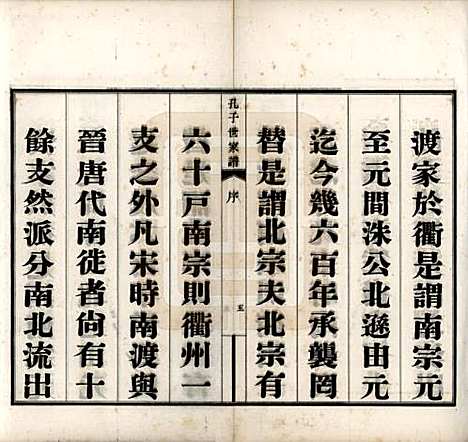 渡家於衢是謂南宗元
至元間洙公北遜由元
迄今幾六百年承襲罔
替是謂北宗夫北宗有
孔子世家譜
序
五
六十戶南宗則衢州一
支之外凡宋時南渡與
晉唐代南徙者尙有十
餘支然派分南北流出